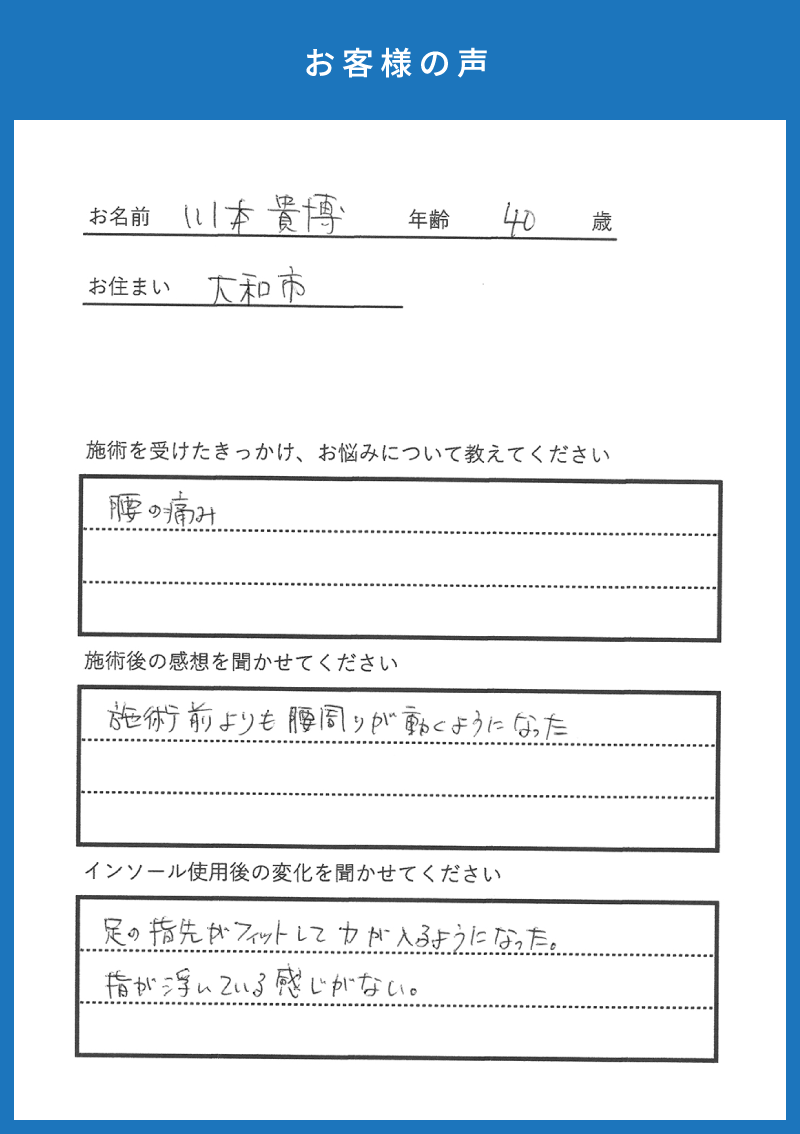 お客様の声
お名前 川本 貴博 年齢 40 歳
お住まい 大和市
施術を受けたきっかけ、お悩みについて教えてください
腰の痛み
施術後の感想を聞かせてください
施術前よりも腰周りが動くようになった
インソール使用後の変化を聞かせてください
足の指先がフィットして力が入るようになった。
指が浮いている感じがない。